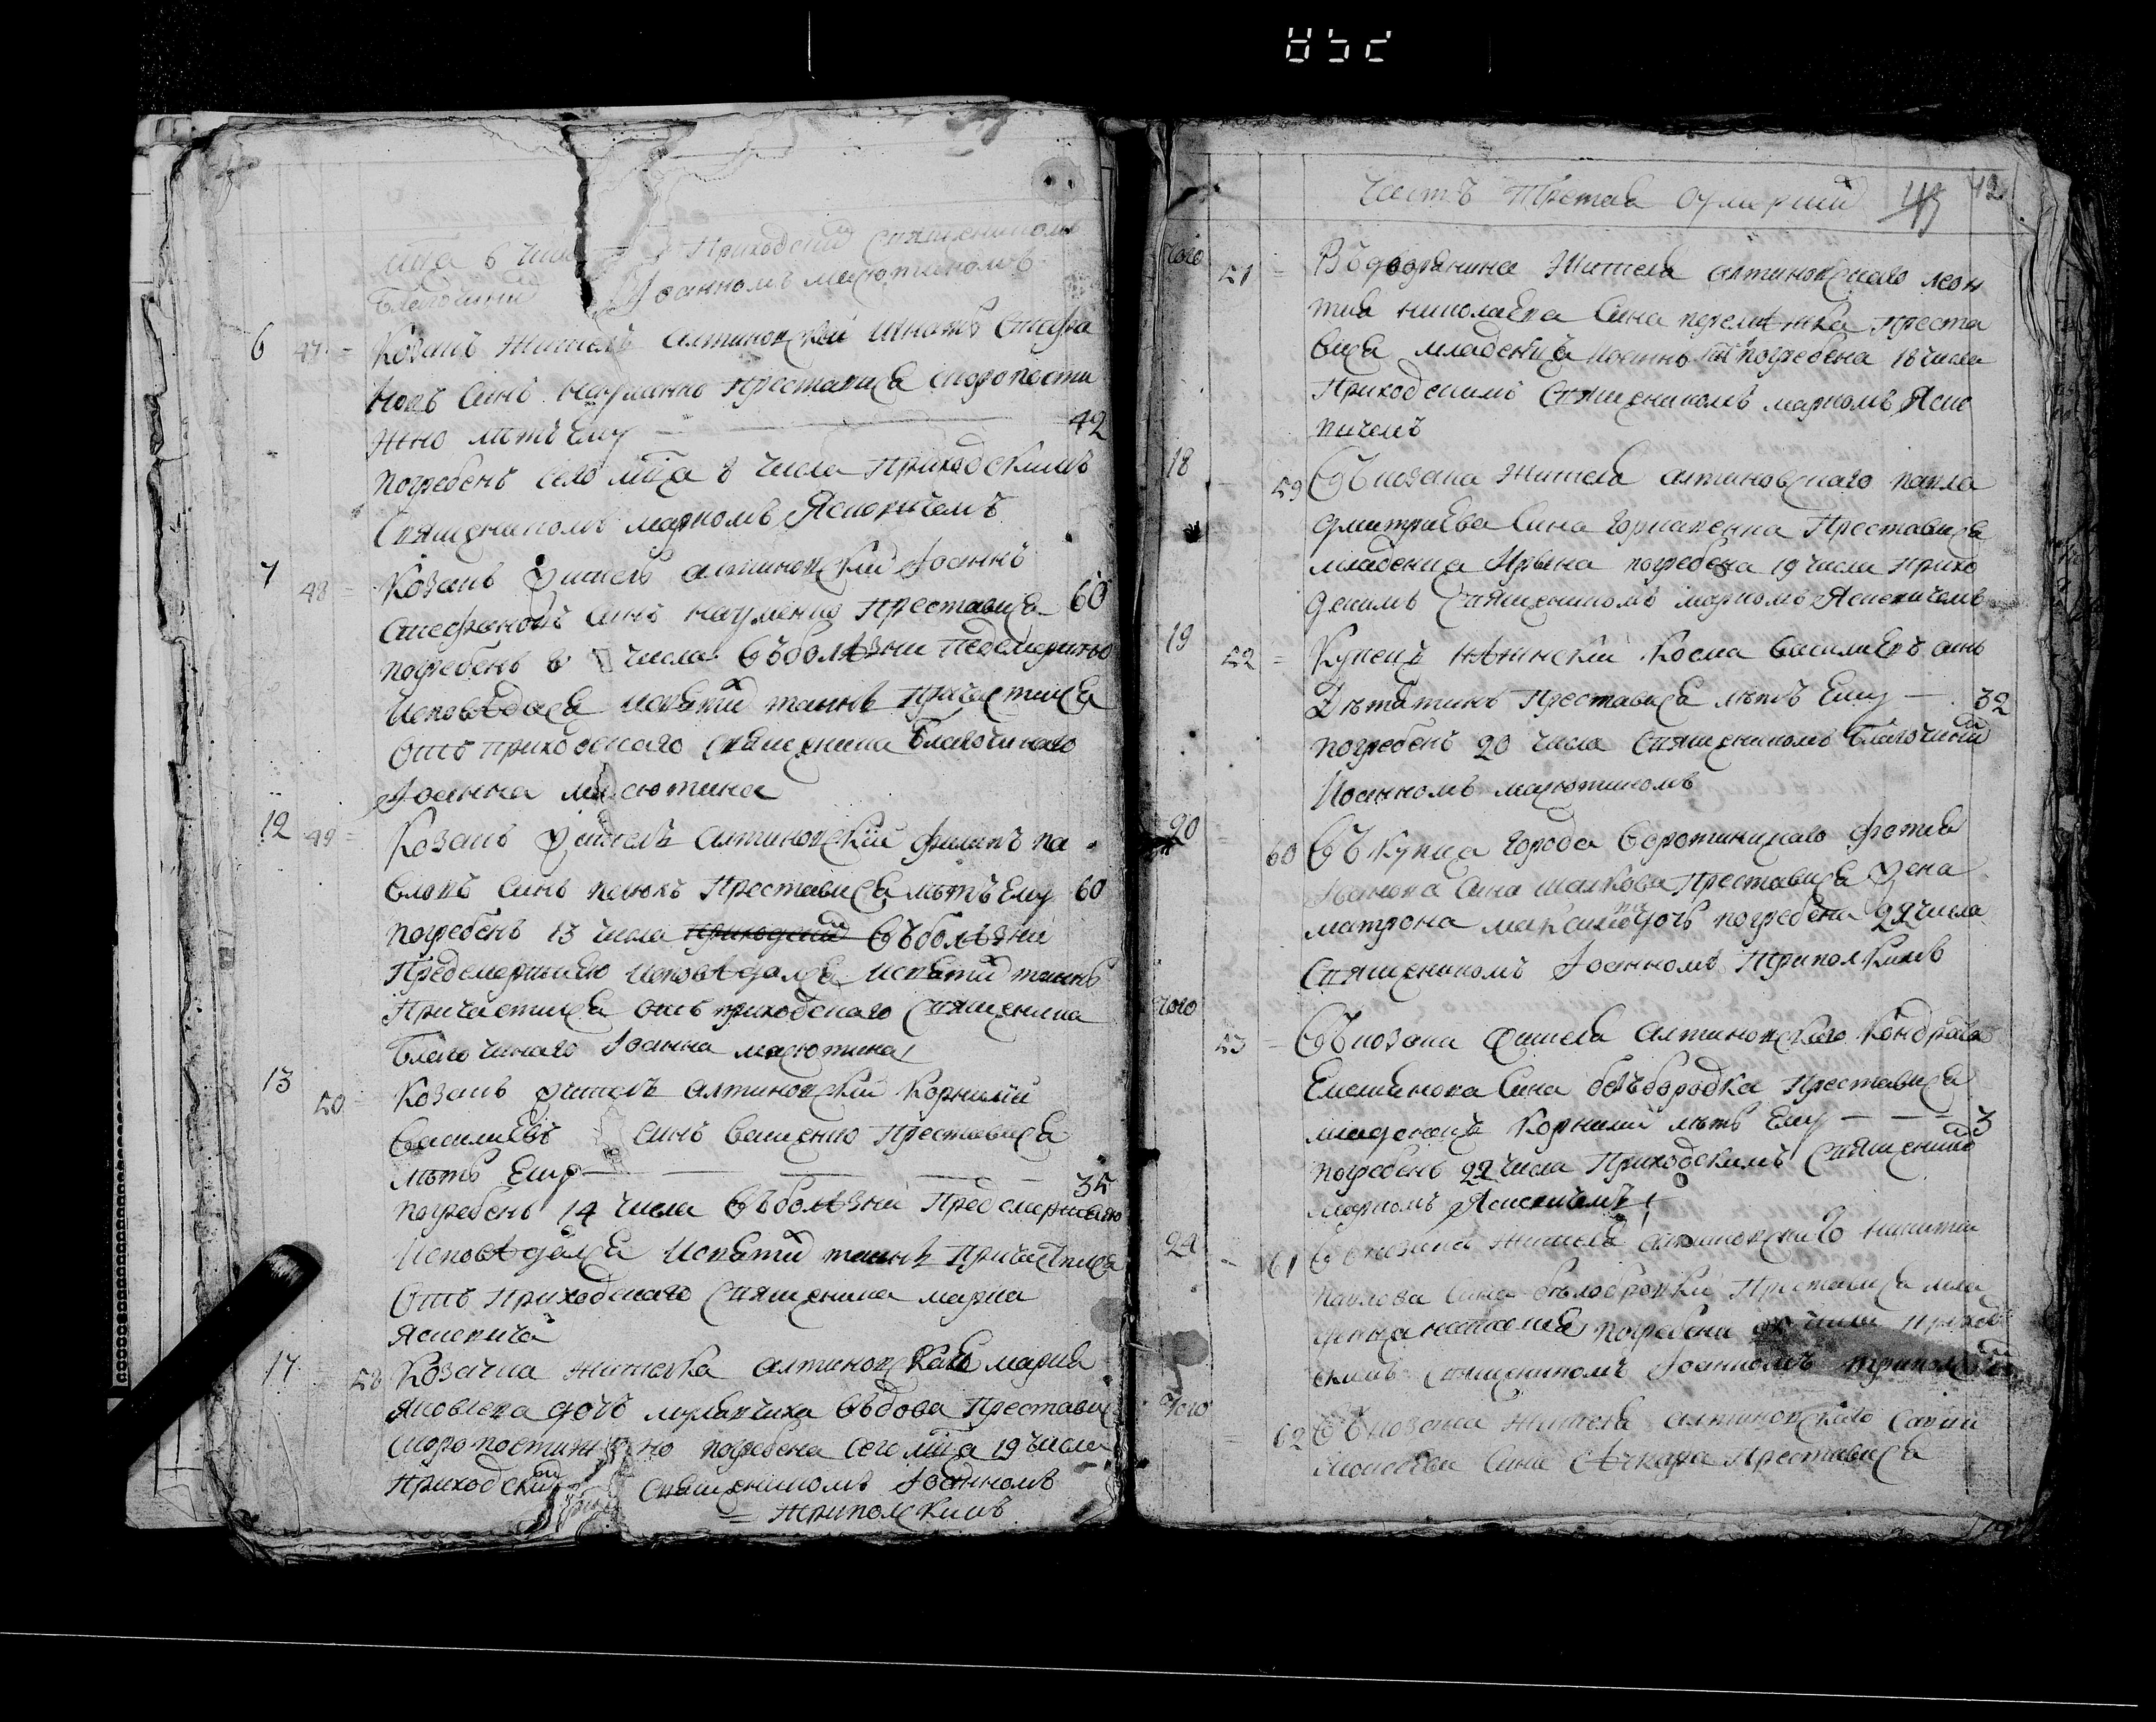 мца 6 числа Приходским Священиком
благочинним Іоанном масютиномъ
6 47 = Козакъ житель алтиновский Игнатъ Стефа
новъ Синъ науменко Преставися скоропости
жно летъ Ему — 42
погребенъ сего мца 8 числа Приходскимъ
Священикомъ маркомъ Ясневичемъ
7 48 = Козакъ житель алтиновский Іоаннъ
Стефановъ Синъ науменко Преставися 60
погребенъ 8 числа Въ болѣзни Предсмертно
Исповѣдася и святихъ таинъ Причастися
Отъ приходского священика благочинаго
Іоанна масютина
12 49 = Козакъ житель алтиновский филипъ па
вловъ Синъ Преставися летъ Ему 60
погребенъ 13 числа Приходский Въ болѣзни
Предсмертною Исповѣдался и святихъ таинъ
Причастися отъ приходского священика
благочинаго Іоанна масютина
13 50 = Козакъ житель алтиновский Корнилий
Василиевъ синъ Ващенко Преставися
летъ Ему — — — 35
погребенъ 14 числа Въ болѣзни Предсмертною
Исповѣдался и святихъ таинъ Причастися
Отъ Приходского священика марка
Ясневича
17 58 Козачка жителка алтиновская мария
Яковлева дочъ Въдова Преставис
скоропостижно погребена сего мца 19 числа
Приходским Священикомъ Іоанномъ
= Триполскимъ
Частъ Третая О умерших 43 42
того 51 = Въ дворянина Жителя алтиновского леон
тия николаева Сина Преста
вися младенецъ погребена 18 числа
Приходскимъ Священикомъ маркомъ Ясне
вичемъ
18 59 Въ козака Жителя алтиновского павла
дмитриева Сина Преставися
младеница Ирына погребена 19 числа Прихо
дскимъ Священикомъ маркомъ Ясневичемъ
19 52 = Купецъ нѣжинский Косма Василиевъ синъ
Преставися летъ Ему — 32
погребенъ 20 числа Священикомъ благочиним
Иоанномъ масютиномъ
20 = 60 Въ Купца города фотия
Иванова Сина Преставися Жена
матрона максимова дочъ погребена 22 числа
Священикомъ Іоанномъ Триполскимъ
того 53 = Въ козака Жителя алтиновского Кондрата
Емелиянова Сина безбородка Преставися
младенецъ Корнилий летъ Ему — — 3
погребенъ 22 числа Приходскимъ Священико
маркомъ Ясневичемъ
24 - 61 Въ козака жителя алтиновского никити
павлова Сина Преставися мла
деница наталия погребена числа Приход
скимъ священикомъ Іоанномъ триполским
того = 62 Въ козака Жителя алтиновского Савии
Сина Преставися